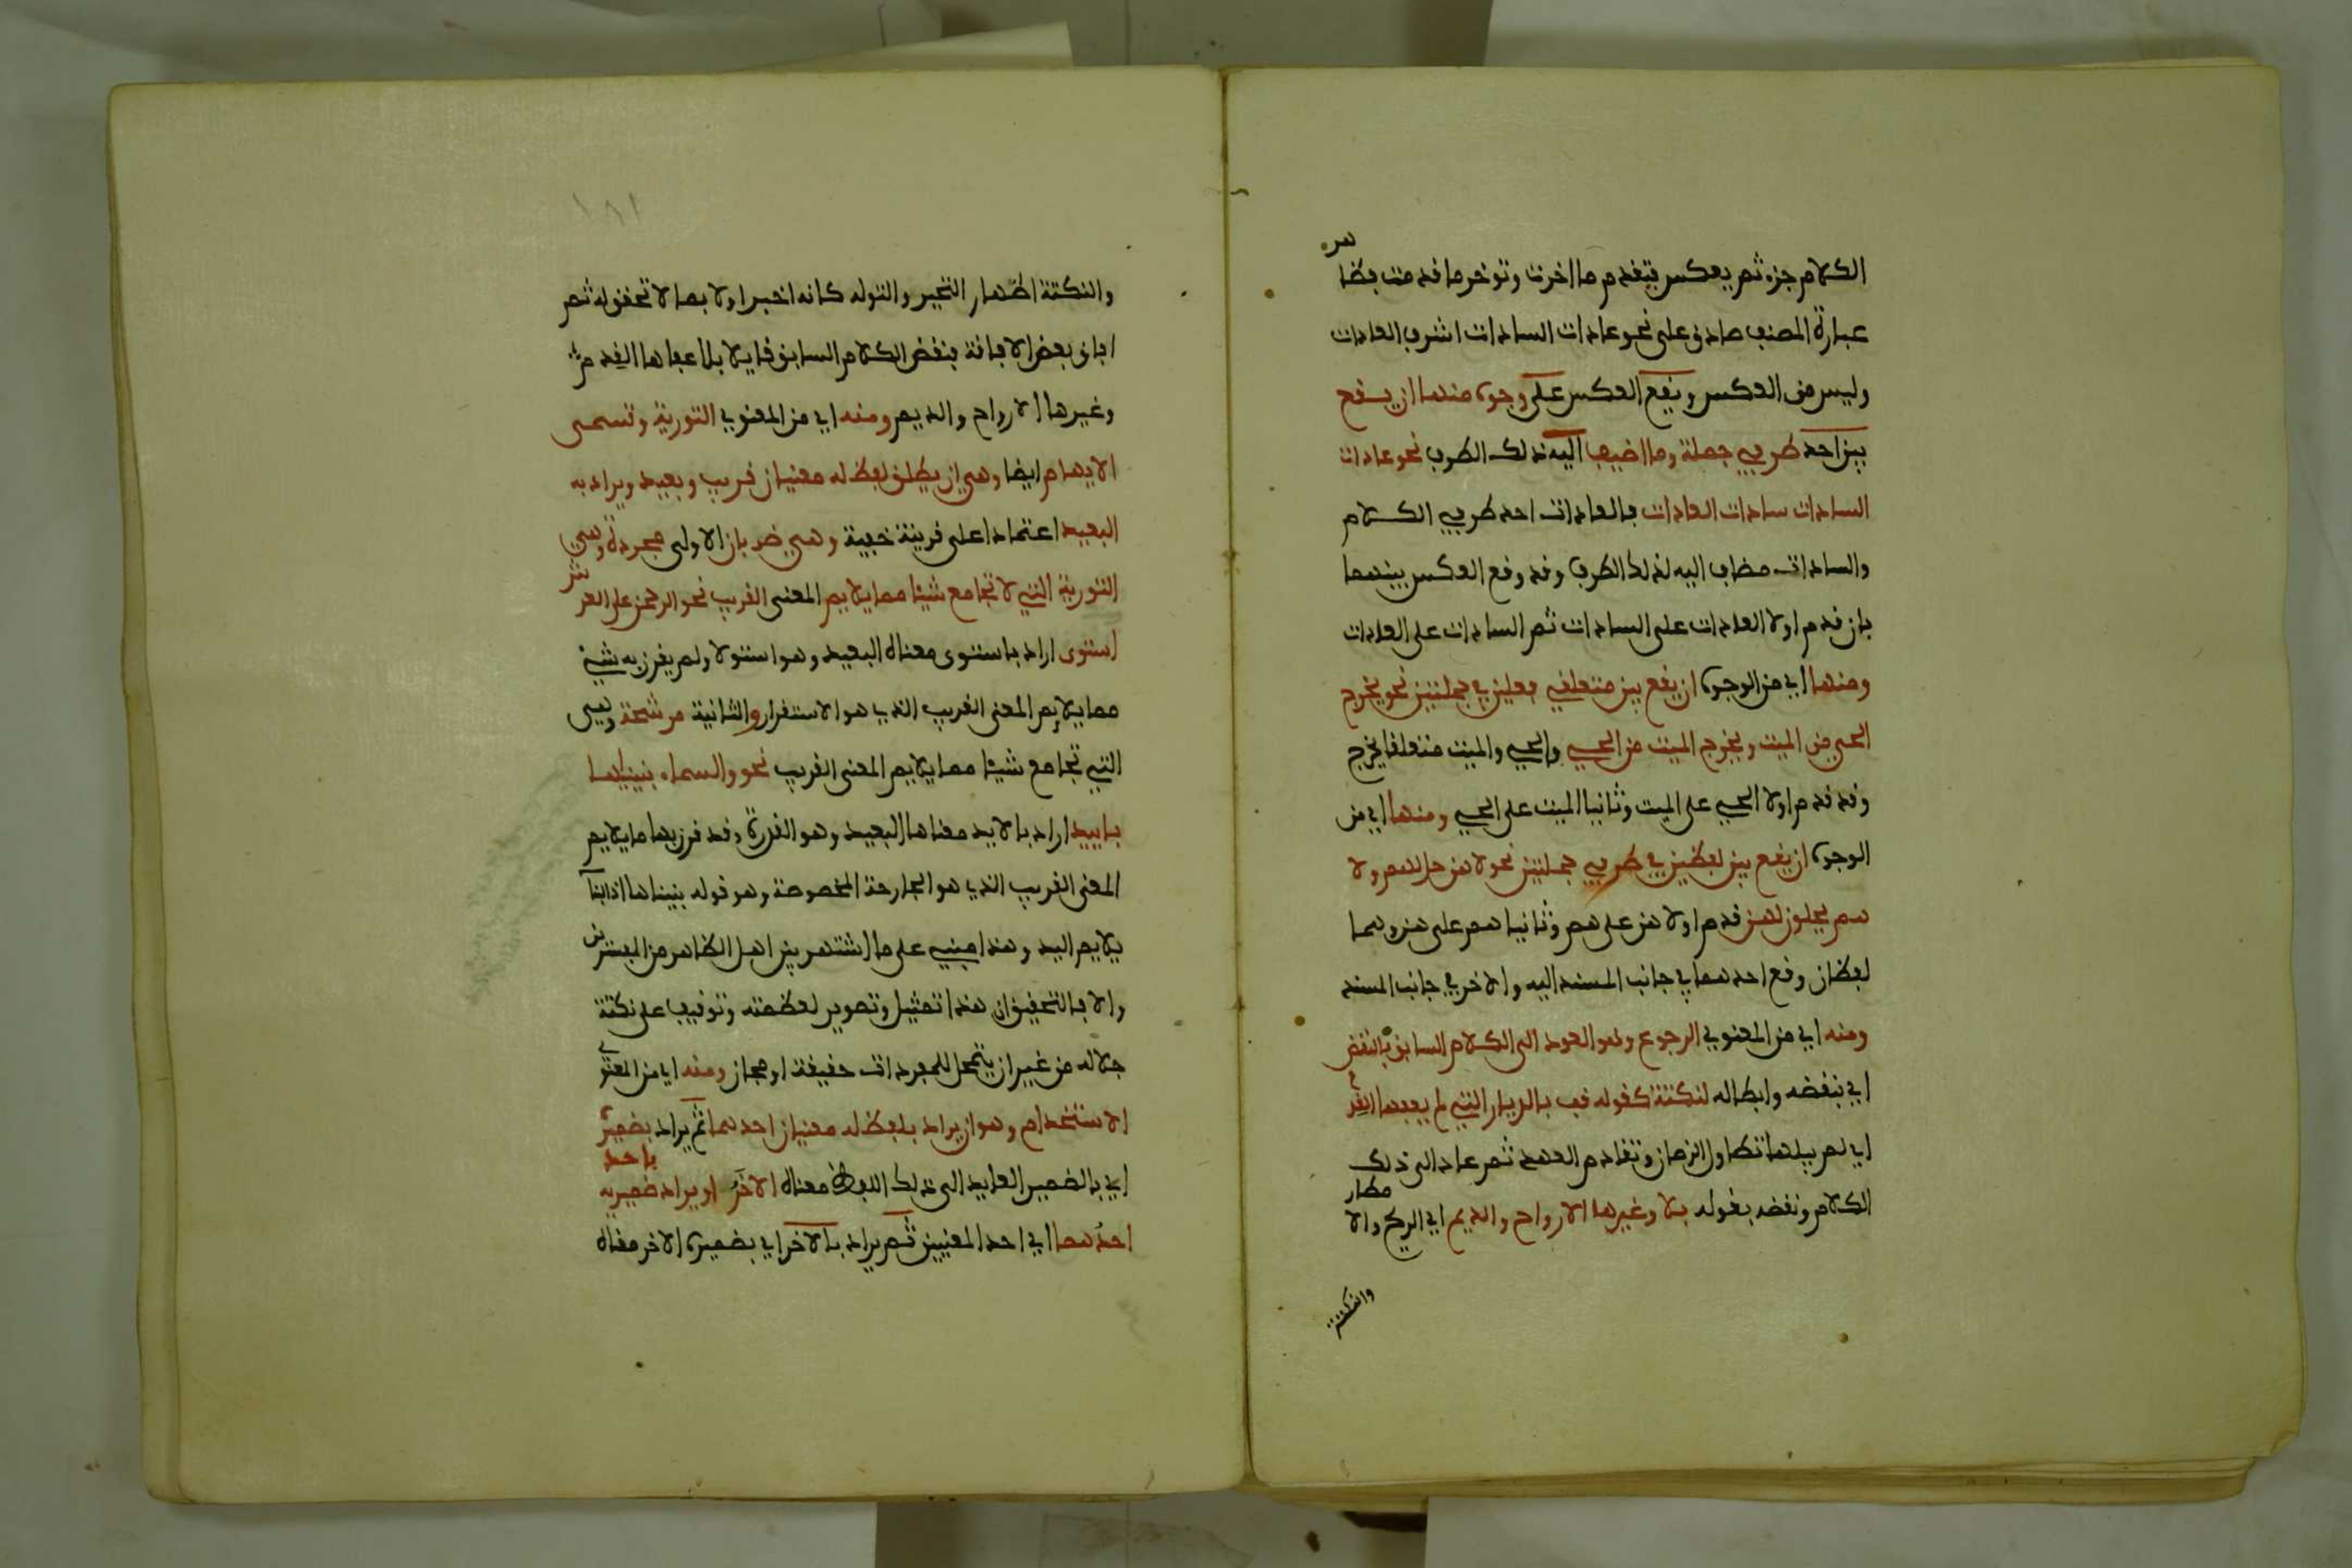 الكلام جزء ثم يعكس فيقدم ما اخرت وتوخر ما قدمت فظاهر
عبارة المصنف صادق على نحو عادات السادات اشرف العادات
وليس من العكس ويقع العكس على وجوه منها ان يقع
بين احد طرفي جملة وما اضيف اليه ذلك الطرف نحو عادات
السادات سادات العادات فالعادات احد طرفي الكلام
والسادات مضاف اليه لذلك الطرف وقد وقع العكس بينهما
بان قدم اولا العادات على السادات ثم السادات على العادات
ومنها اي من الوجوه ان يقع بين متعلقي فعلين في جملتين نحو يخرج
الحي من الميت ويخرج الميت من الحي والحي والميت متعلقا يخرج
وقد قدم اولا الحي على الميت وثانيا الميت على الحي ومنها اي من
الوجوه ان يقع بين لفظين في طرفي جملتين نحو لا هن حل لهم ولا
هم يحلون لهن قدم اولا هن على هم وثانيا هم على هن وهما
لفظان وقع احدهما في جانب المسند اليه والاخر في جانب المسند
ومنه اي من المعنوي الرجوع وهو العود الى الكلام السابق بالنقض
اي بنقضه وابطاله لنكتة كقوله قف بالديار التي لم يعفها القدم
اي لم يبلها تطاول الزمان وتقادم العهد ثم عاد الى ذلك
الكلام ونقضه بقوله بلا وغيرها الارواح والديم اي الريح والامطار
والنكتة
١٨١
والنكتة اظهار التحير والتوله كانه اخبر اولا بما لا تحقق له ثم
افاق بعض الافاقة فنقض الكلام السابق قايلا بلا عفاها القدم
وغيرها الارواح والديم ومنه اي من المعنوي التورية وتسمى
الايهام ايضا وهي ان يطلق لفظ له معنيان قريب وبعيد ويراد به
البعيد اعتمادا على قرينة خفية وهي ضربان الاولى مجردة وهي
التورية التي لا تجامع شيئا مما يلايم المعنى القريب نحو الرحمن على العرش
استوى اراد باستوى معناه البعيد وهو استولا ولم يقرن به شيء
مما يلايم المعنى القريب الذي هو الاستقرار والثانية مرشحة وهي
التي تجامع شيئا مما يلايم المعنى القريب نحو والسماء بنيناها
باييد اراد بالايد معناها البعيد وهو القدرة وقد قرن بها ما يلايم
المعنى القريب الذي هو الجارحة المخصوصة وهو قوله بنيناها اذ البنا
يلايم اليد وهذا مبني على ما اشتهر بين اهل الظاهر من المفسرين
والا فالتحقيق ان هذا تمثيل وتصوير لعظمته وتوقيف على نكتة
جلاله من غير ان يتمحل للمفردات حقيقة او مجاز ومنه اي من المعنوي
الاستخدام وهو ان يراد بلفظ له معنيان احدهما ثم يراد بضميره
اي بالضمير العايد الى ذلك اللفظ معناه الاخر او يراد باحد ضميريه
احدهما اي احد المعنيين ثم يراد بالاخر اي بضميره الاخر معناه